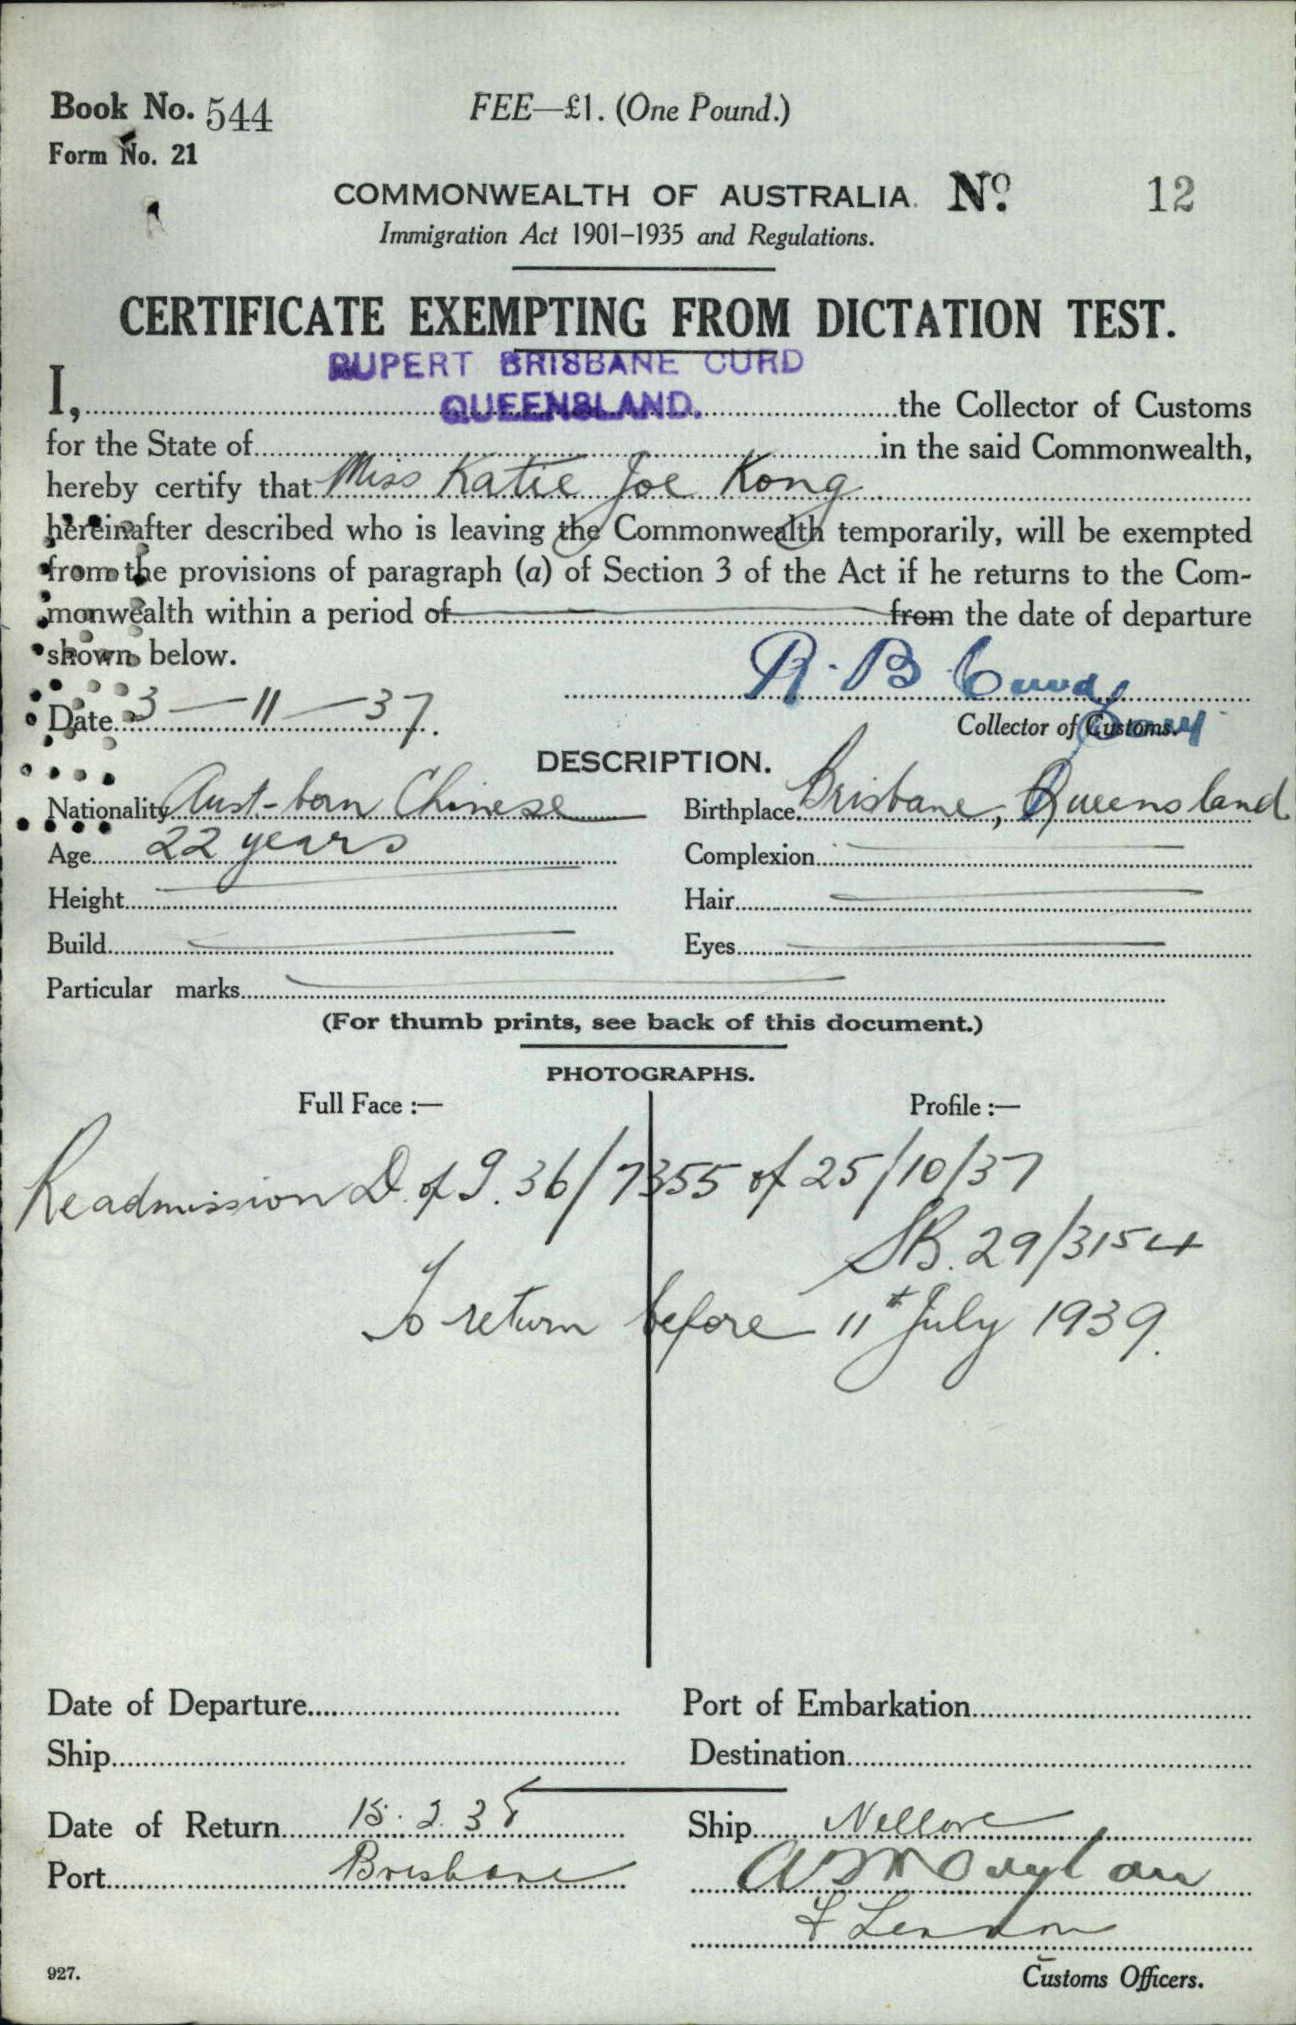 Book No. 544
FEE—£1. (One Pound.)
Form No. 21
COMMONWEALTH OF AUSTRALIA. No. 12
Immigration Act 1901–1935 and Regulations.
CERTIFICATE EXEMPTING FROM DICTATION TEST.
RUPERT BRISBANE CURD
I, QUEENSLAND. the Collector of Customs
for the State of in the said Commonwealth,
hereby certify that Miss Katie Joe Kong
hereinafter described who is leaving the Commonwealth temporarily, will be exempted
from the provisions of paragraph (a) of Section 3 of the Act if he returns to the Com-
monwealth within a period of from the date of departure
shown below.
R. B. Curd
Date 3 — 11 — 37.
Collector of Customs.
DESCRIPTION.
Nationality Aust-born Chinese Birthplace Brisbane, Queensland
Age 22 years Complexion
Height Hair
Build Eyes
Particular marks
(For thumb prints, see back of this document.)
PHOTOGRAPHS.
Full Face :— Profile :—
Readmission D. of I. 36/7355 of 25/10/37
SB. 29/3154
To return before 11th July 1939.
Date of Departure Port of Embarkation
Ship Destination
Date of Return 15. 2. 38 Ship Nellore
Port Brisbane
927.
Customs Officers.